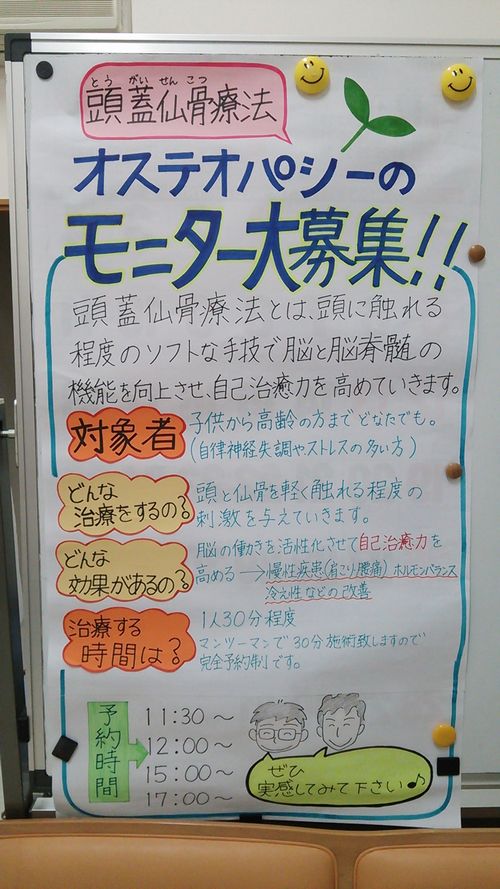 とうがいせんこつ
頭蓋仙骨療法
オステオパシーの
モニター大募集!!
頭蓋仙骨療法とは、頭に触れる
程度のソフトな手技で脳と脳脊髄の
機能を向上させ、自己治癒力を高めていきます。
対象者
子供から高齢の方までどなたでも。
(自律神経失調やストレスの多い方)
どんな
治療をするの?
頭と仙骨を軽く触れる程度の
刺激を与えていきます。
どんな
効果があるの?
脳の働きを活性化させて自己治癒力を
高める→慢性疾患(肩こり/腰痛)ホルモンバランス
冷え性などの改善
治療する
時間は?
1人30分程度
マンツーマンで30分施術致しますので
完全予約制です。
予約時間
11:30〜
12:00〜
15:00〜
17:00〜
ぜひ
実感してみて下さい♪